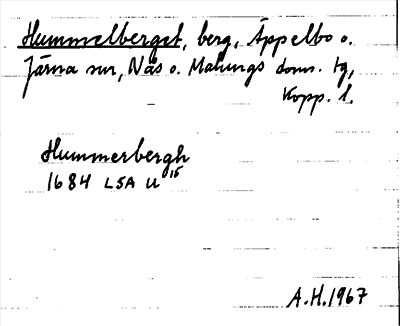 Hummelberget, berg, Äppelbo o.
Järna snr, Nås o. Malungs doms. tg,
Kopp. l.
Hummerbergh
1684 LSA U 15
A.H. 1967